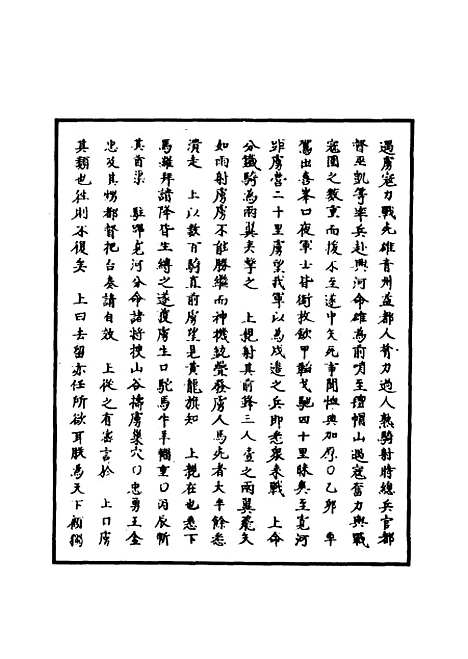 遇虜寇力戰死雄青州益都人膂力過人熟騎射時總兵官都
督巫凱等率兵赴興河命雄為前哨至獐帽山遇寇奮力與戰
寇圍之數重而後不至遂中矢死事聞恤典加厚〇乙卯　車
駕出喜峯口夜軍士皆銜枚歛甲韜戈馳四十里昧爽至寬河
距虜營二十里虜望我軍以為戍邊之兵即悉衆來戰　上命
分鐵騎為兩翼夾擊之　上親射其前鋒三人殪之兩翼飛矢
如雨射虜虜不能勝繼而神機銃疊發虜人馬死者大半餘悉
潰走　上以數百騎直前虜望見黃龍旗知　上親在也悉下
馬羅拜請降皆生縛之遂獲虜生口駝馬牛羊輜重〇丙辰斬
其酋渠　駐蹕寬河分命諸將搜山谷擣虜巢穴〇忠勇王金
忠及其甥都督把台奏請自效　上從之有密言於　上曰虜
其類也往則不復矣　上曰去留亦任所欲耳朕為天下顧獨